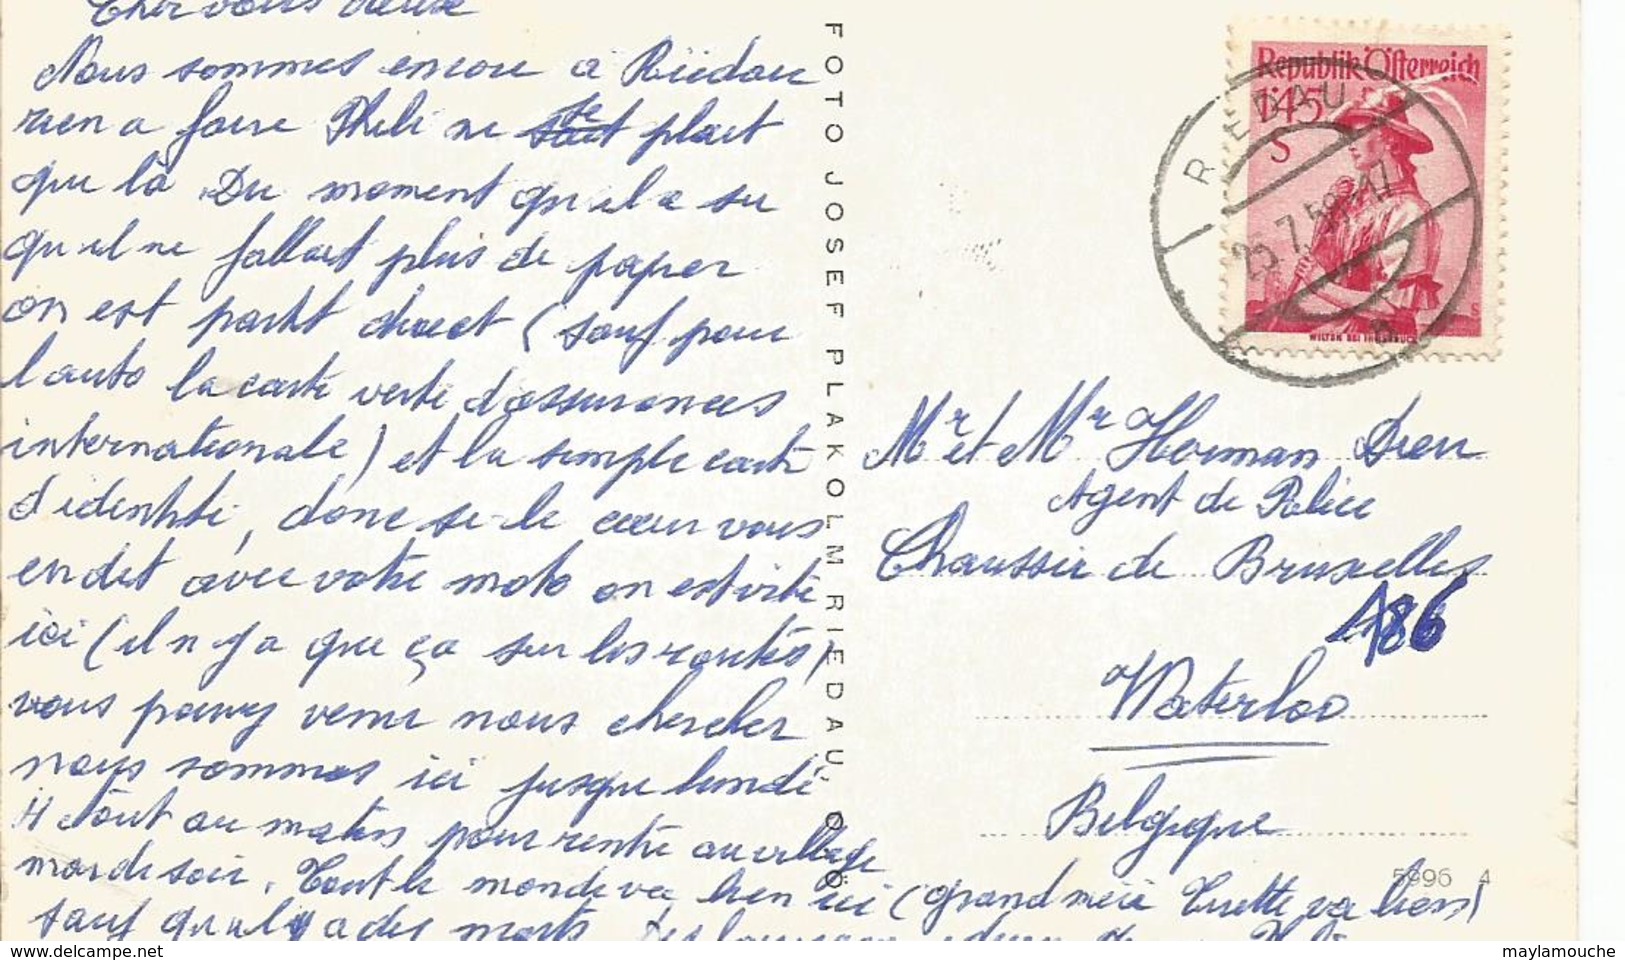 Cher vous deux
Nous sommes encore a Riedau
rien a faire Theli ne se plait
que là. Du moment qu il a su
qu il ne fallait plus de papier
on est partit direct (sauf pour
l auto la carte verte d assurances
internationale) et la simple carte
d identité, donc si le cœur vous
en dit avec votre moto on est vite
ici (il n y a que ça sur les routes)
vous pouvez venir nous chercher
nous sommes ici jusque lundi
4 août au matin pour rentré au village
mardi soir. Tout le monde va bien ici (grand mère va bien)
sauf qu il y a des
FOTO JOSEF PLAKOLM RIEDAU, OÖ
Republik Österreich
1.45
S
WILTEN BEI INNSBRUCK
RIEDAU
25.7.58-17
a
Mr et Mr Herman Dieu
Agent de Police
Chaussée de Bruxelles
186
Waterloo
Belgique
5996 4
maylamouche